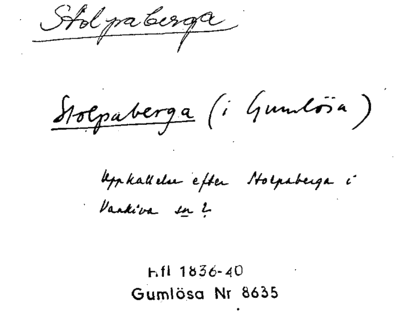 Stolpaberga
Stolpaberga (i Gumlösa)
Uppkallelse efter Stolpaberga i
Vankiva sn?
Hfl 1836-40
Gumlösa Nr 8635